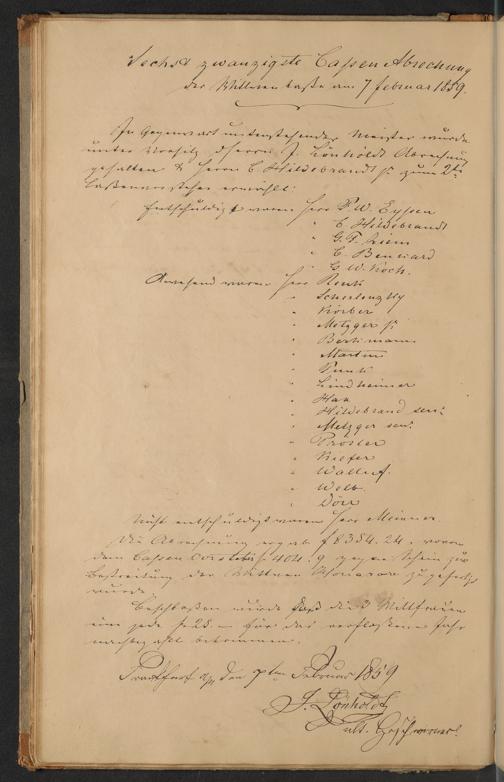 Sechs & zwanzigste Cassen Abrechnung
der Wittwen Casse am 7 Februar 1859.
In Gegenwart untenstehender Meister wurde
unter Vorsitz d Herrn J. Lönholdt Abrechnung
gehalten & Herrn C Hildebrandt jr. zum 2ten
Cassenvorsteher erwählt.
Entschuldigt waren Herr P. W. Eyssen
" C. Hildebrandt
" G. F. Ziem
" C. Benkard
" G. W. Koch.
Anwesend waren Herr Renk
"
" Körber
" Metzger jr.
" Berkmann
" Martin
"
" Lindheimer
" Haa
" Hildebrand sen:
" Metzger sen:
" Prosler
" Kiefer
" Walluf.
" Wolb
" Dörr
Nicht entschuldigt waren Herr Meixner
Die Abrechnung ergab f 8354. 24, wovon
dem Cassen f 404. 9 gegen Schein zur
Bestreitung der Wittwen Honorare zugestellt
wurde.
Beschlossen wurde daß die 3 Wittfrauen
um jede f 25 – für das verflossene Jahr
bekommen.
Frankfurt a/m den 7ten Februar 1859
J. Lönholdt
ält. Geschworner.